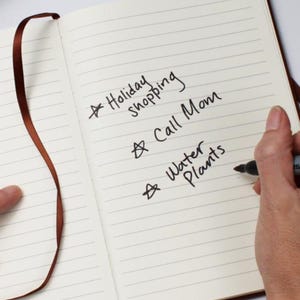 ☆ Holiday
shopping
☆ Call Mom
☆ Water
Plants